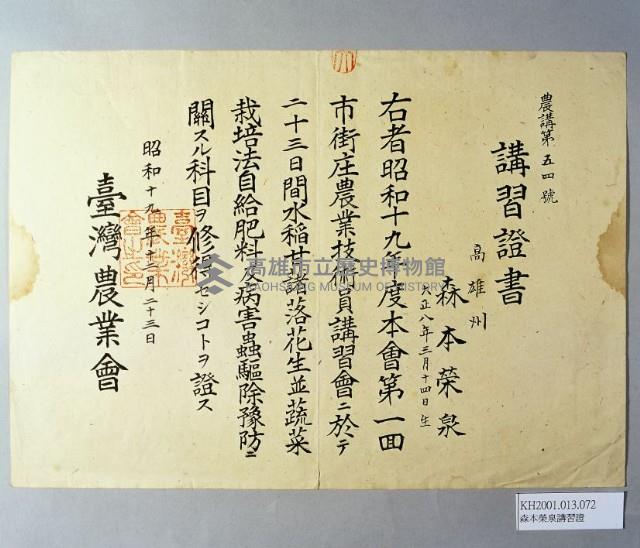 農講第五四號
講習證書
高雄州
森本榮泉
大正八年三月十四日生
右者昭和十九年度本會第一回
市街庄農業技術員講習會ニ於テ
二十三日間水稻甘藷落花生並蔬菜
栽培法自給肥料病害蟲驅除豫防ニ
關スル科目ヲ修得セシコトヲ證ス
昭和十九年十二月二十三日
臺灣農業會
臺灣農業會之印
高雄市立歷史博物館
KAOHSIUNG MUSEUM OF HISTORY
KH2001.013.072
森本榮泉講習證